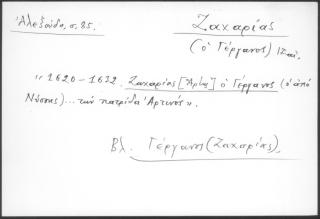 Ἀλεξούδη, σ. 85.
Ζαχαρίας
(ὁ Γέργανος)
« 1620 - 1632. Ζαχαρίας [Ἄρτης] ὁ Γέργανος (ὁ ἀπό
Νύσσης)... τὴν πατρίδα Ἀρτινός».
Βλ. Γέργανος (Ζαχαρίας).